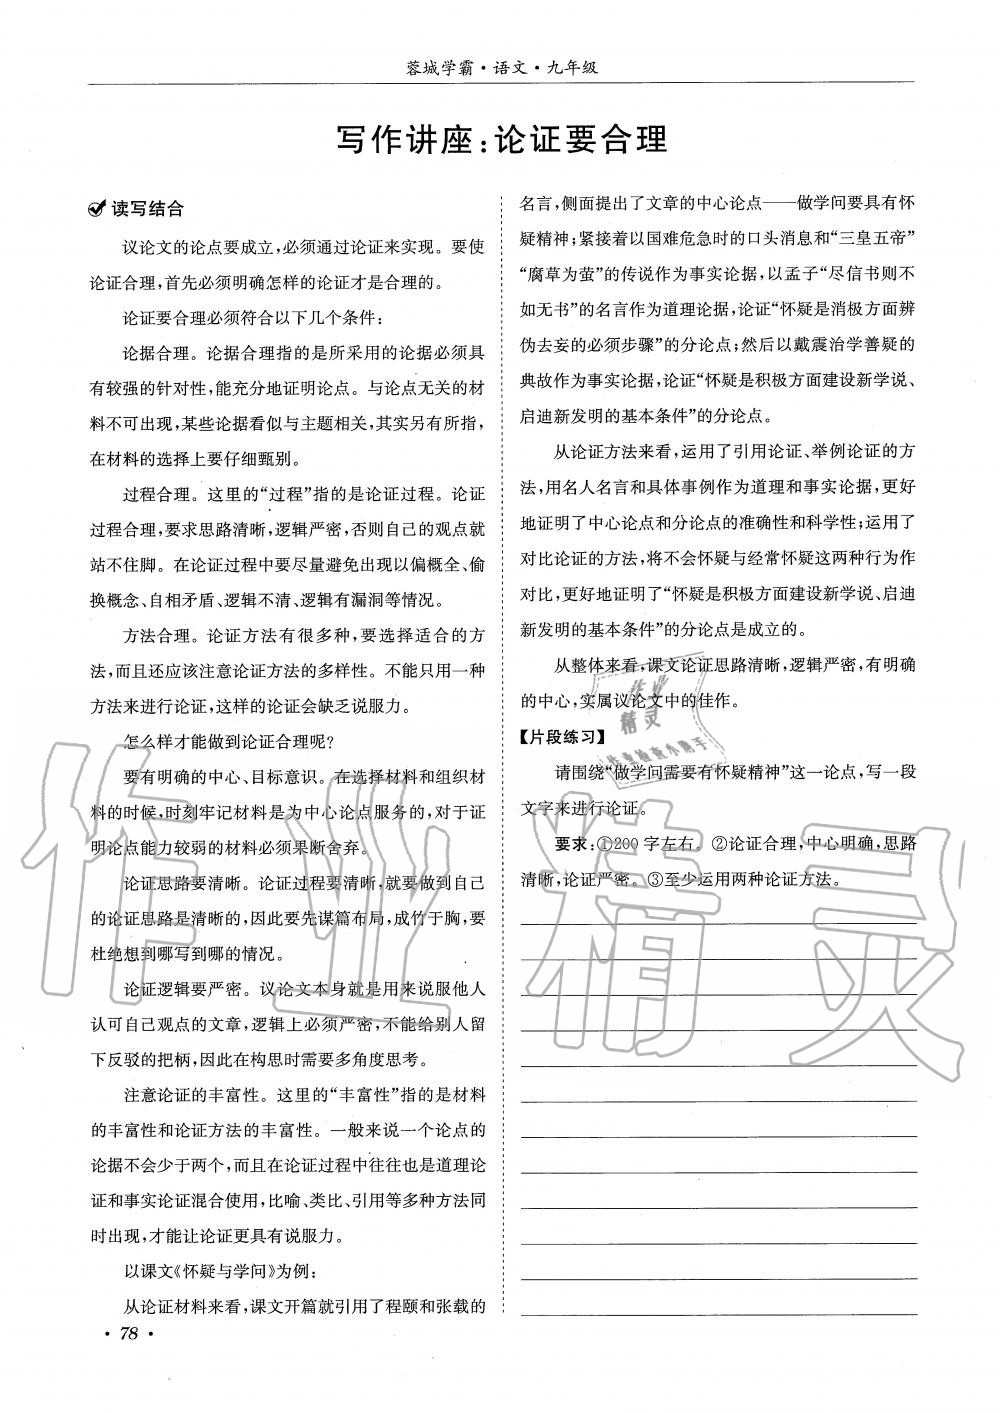 蓉城学霸·语文·九年级
写作讲座:论证要合理
读写结合
议论文的论点要成立,必须通过论证来实现。要使
论证合理,首先必须明确怎样的论证才是合理的。
论证要合理必须符合以下几个条件:
论据合理。论据合理指的是所采用的论据必须具
有较强的针对性,能充分地证明论点。与论点无关的材
料不可出现,某些论据看似与主题相关,其实另有所指,
在材料的选择上要仔细甄别。
过程合理。这里的“过程”指的是论证过程。论证
过程合理,要求思路清晰,逻辑严密,否则自己的观点就
站不住脚。在论证过程中要尽量避免出现以偏概全、偷
换概念、自相矛盾、逻辑不清、逻辑有漏洞等情况。
方法合理。论证方法有很多种,要选择适合的方
法,而且还应该注意论证方法的多样性。不能只用一种
方法来进行论证,这样的论证会缺乏说服力。
怎么样才能做到论证合理呢?
要有明确的中心、目标意识。在选择材料和组织材
料的时候,时刻牢记材料是为中心论点服务的,对于证
明论点能力较弱的材料必须果断舍弃。
论证思路要清晰。论证过程要清晰,就要做到自己
的论证思路是清晰的,因此要先谋篇布局,成竹于胸,要
杜绝想到哪写到哪的情况。
论证逻辑要严密。议论文本身就是用来说服他人
认可自己观点的文章,逻辑上必须严密,不能给别人留
下反驳的把柄,因此在构思时需要多角度思考。
注意论证的丰富性。这里的“丰富性”指的是材料
的丰富性和论证方法的丰富性。一般来说一个论点的
论据不会少于两个,而且在论证过程中往往也是道理论
证和事实论证混合使用,比喻、类比、引用等多种方法同
时出现,才能让论证更具有说服力。
以课文《怀疑与学问》为例:
从论证材料来看,课文开篇就引用了程颐和张载的
名言,侧面提出了文章的中心论点——做学问要具有怀
疑精神;紧接着以国难危急时的口头消息和“三皇五帝”
“腐草为萤”的传说作为事实论据,以孟子“尽信书则不
如无书”的名言作为道理论据,论证“怀疑是消极方面辨
伪去妄的必须步骤”的分论点;然后以戴震治学善疑的
典故作为事实论据,论证“怀疑是积极方面建设新学说、
启迪新发明的基本条件”的分论点。
从论证方法来看,运用了引用论证、举例论证的方
法,用名人名言和具体事例作为道理和事实论据,更好
地证明了中心论点和分论点的准确性和科学性;运用了
对比论证的方法,将不会怀疑与经常怀疑这两种行为作
对比,更好地证明了“怀疑是积极方面建设新学说、启迪
新发明的基本条件”的分论点是成立的。
从整体来看,课文论证思路清晰,逻辑严密,有明确
的中心,实属议论文中的佳作。
【片段练习】
请围绕“做学问需要有怀疑精神”这一论点,写一段
文字来进行论证。
要求:①200字左右。②论证合理,中心明确,思路
清晰,论证严密。③至少运用两种论证方法。
·78·
作业精灵
作业
精灵
作业检查小助手